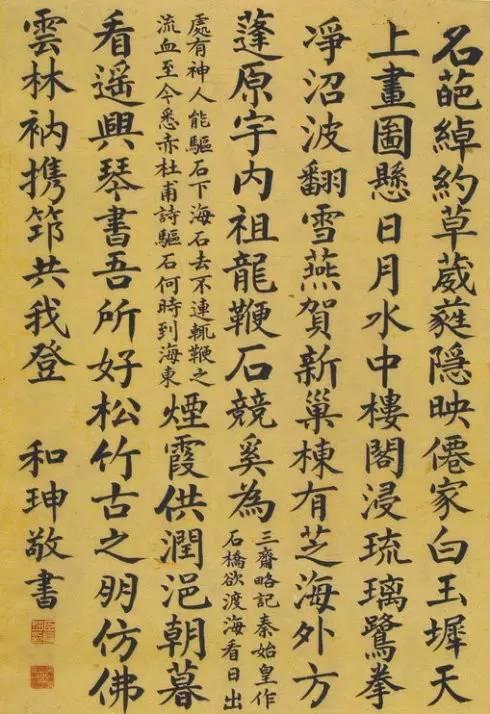 名葩綽約草葳蕤隱映僊家白玉墀天
上畫圖懸日月水中樓閣浸琉璃鷺拳
凈沼波翻雪燕賀新巢棟有芝海外方
蓬原宇内祖龍鞭石競奚為
三齋略記秦始皇作
石橋欲渡海看日出
處有神人能驅石下海石去不速輒鞭之
流血至今悉赤杜甫詩驅石何時到海東
煙霞供潤浥朝暮
看遥興琴書吾所好松竹古之朋仿佛
雲林衲携筇共我登 和珅敬書